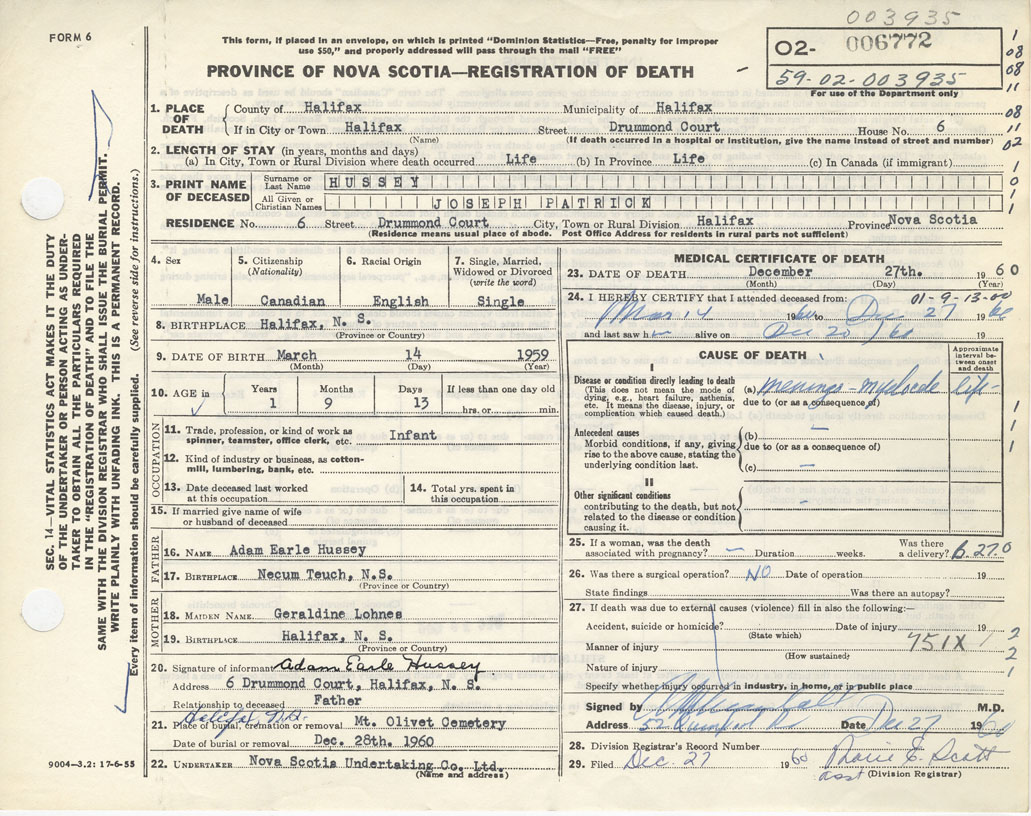 003935
FORM 6
This form, if placed in an envelope, on which is printed "Dominion Statistics—Free, penalty for improper
use $50," and properly addressed will pass through the mail "FREE"
02- 006772
59-02-003935
For use of the Department only
PROVINCE OF NOVA SCOTIA—REGISTRATION OF DEATH
1. PLACE OF DEATH
County of Halifax Municipality of Halifax
If in City or Town Halifax Street Drummond Court House No. 6
(Name) (If death occurred in a hospital or institution, give the name instead of street and number)
2. LENGTH OF STAY (in years, months and days)
(a) In City, Town or Rural Division where death occurred Life (b) In Province Life (c) In Canada (if immigrant)
3. PRINT NAME OF DECEASED
Surname or Last Name HUSSEY
All Given or Christian Names JOSEPH PATRICK
RESIDENCE No. 6 Street Drummond Court City, Town or Rural Division Halifax Province Nova Scotia
(Residence means usual place of abode. Post Office Address for residents in rural parts not sufficient)
4. Sex Male
5. Citizenship (Nationality) Canadian
6. Racial Origin English
7. Single, Married, Widowed or Divorced (write the word) Single
8. BIRTHPLACE Halifax, N. S.
(Province or Country)
9. DATE OF BIRTH March 14 1959
(Month) (Day) (Year)
10. AGE in Years 1 Months 9 Days 13 If less than one day old hrs. or min.
OCCUPATION
11. Trade, profession, or kind of work as
spinner, teamster, office clerk, etc. Infant
12. Kind of industry or business, as cotton-
mill, lumbering, bank, etc.
13. Date deceased last worked
at this occupation
14. Total yrs. spent in
this occupation
15. If married give name of wife
or husband of deceased
FATHER
16. NAME Adam Earle Hussey
17. BIRTHPLACE Necum Teuch, N.S.
(Province or Country)
MOTHER
18. MAIDEN NAME. Geraldine Lohnes
19. BIRTHPLACE Halifax, N. S.
(Province or Country)
20. Signature of informant Adam Earle Hussey
Address 6 Drummond Court, Halifax, N. S.
Relationship to deceased Father
Halifax N.S.
21. Place of burial, cremation or removal Mt. Olivet Cemetery
Date of burial or removal Dec. 28th. 1960
22. UNDERTAKER Nova Scotia Undertaking Co. Ltd.
(Name and address)
MEDICAL CERTIFICATE OF DEATH
23. DATE OF DEATH December 27th. 1960
(Month) (Day) (Year)
01-9-13-00
24. I HEREBY CERTIFY that I attended deceased from:
Mar 14 1960 to Dec 27 1960
and last saw him alive on Dec 20/60
CAUSE OF DEATH
Approximate interval between onset and death
I
Disease or condition directly leading to death
(This does not mean the mode of
dying, e.g., heart failure, asthenia,
etc. It means the disease, injury, or
complication which caused death.)
(a) life
due to (or as a consequence of)
Antecedent causes
Morbid conditions, if any, giving
rise to the above cause, stating the
underlying condition last.
(b) —
due to (or as a consequence of)
(c) —
II
Other significant conditions
contributing to the death, but not
related to the disease or condition
causing it.
25. If a woman, was the death
associated with pregnancy? — Duration weeks. Was there
a delivery?
26. Was there a surgical operation? NO Date of operation 19
State findings Was there an autopsy?
27. If death was due to external causes (violence) fill in also the following:—
Accident, suicide or homicide? Date of injury 19
(State which)
Manner of injury 751X
(How sustained)
Nature of injury
Specify whether injury occurred in industry, in home, or in public place
Signed by M.D.
Address Date Dec 27 1960
28. Division Registrar's Record Number
29. Filed Dec. 27 1960 Scott
asst (Division Registrar)
SEC. 14—VITAL STATISTICS ACT MAKES IT THE DUTY
OF THE UNDERTAKER OR PERSON ACTING AS UNDER-
TAKER TO OBTAIN ALL THE PARTICULARS REQUIRED
IN THE "REGISTRATION OF DEATH" AND TO FILE THE
SAME WITH THE DIVISION REGISTRAR WHO SHALL ISSUE THE BURIAL PERMIT.
WRITE PLAINLY WITH UNFADING INK. THIS IS A PERMANENT RECORD.
Every item of information should be carefully supplied. (See reverse side for instructions.)
9004—3.2: 17-6-55